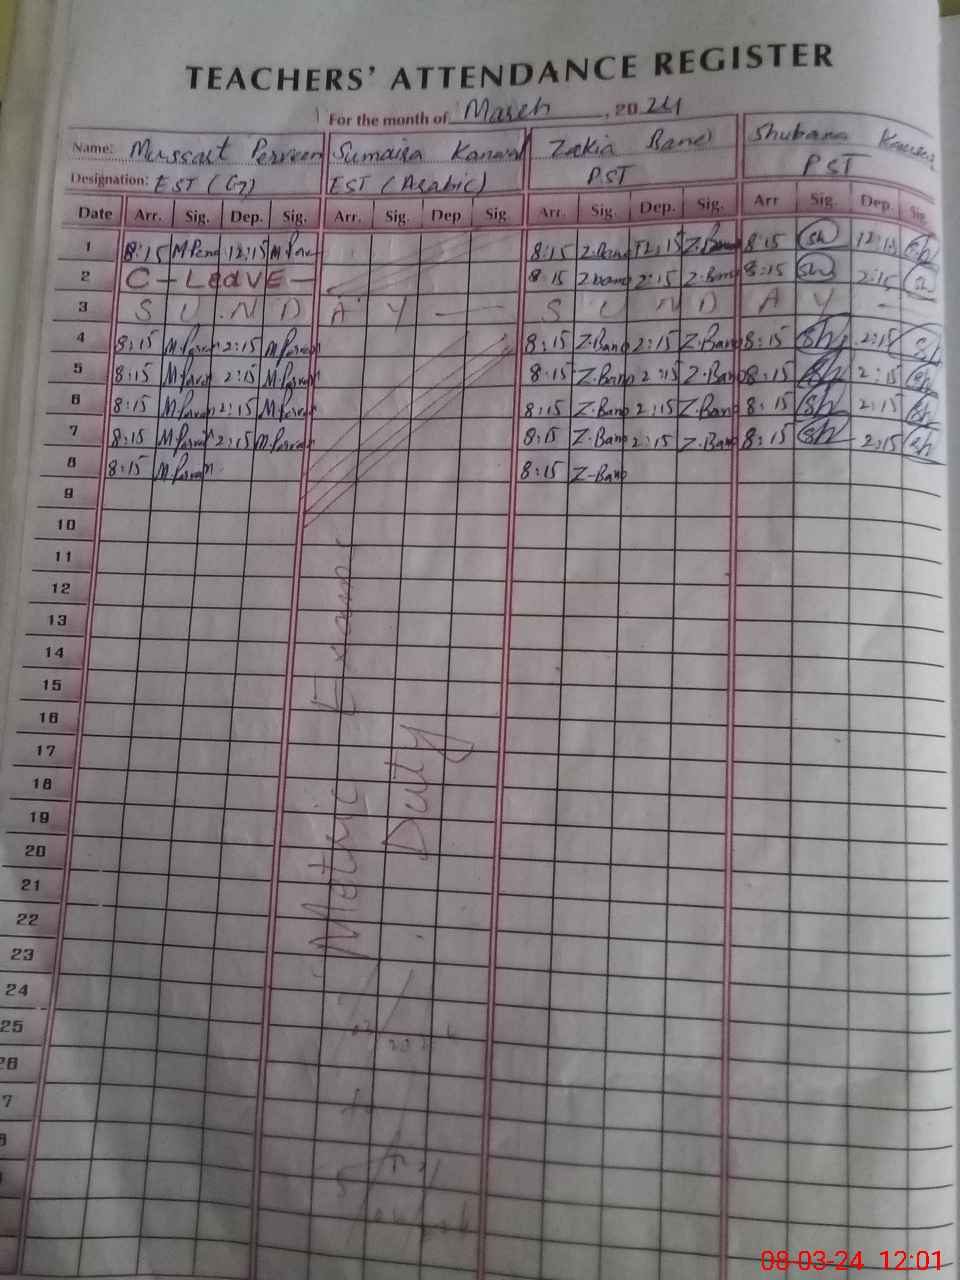 TEACHERS' ATTENDANCE REGISTER
For the month of March, 2024
Name: Mussart Perveen Sumaira Kanwal Zakia Bano Shubana Kausar
Designation: EST (G) EST (Arabic) PST PST
Date Arr. Sig. Dep. Sig. Arr. Sig. Dep Sig Arr. Sig. Dep. Sig. Arr Sig. Dep. Sig.
1 8:15 12:15 8:15 Z.Bano 12:15 Z.Bano 8:15 sh 12:15 sh
2 C-LeaVE- 8:15 Z.bano 2:15 Z.Bano 8:15 sh 2:15 sh
3 S U N D A Y — S U N D A Y —
4 8:15 M.Parveen 2:15 M.Parveen 8:15 Z.Bano 2:15 Z.Bano 8:15 sh 2:15 sh
5 8:15 M.Parveen 2:15 M.Parveen 8:15 Z.Bano 2:15 Z.Bano 8:15 sh 2:15 sh
6 8:15 M.Parveen 2:15 M.Parveen 8:15 Z.Bano 2:15 Z.Bano 8:15 sh 2:15 sh
7 8:15 M.Parveen 2:15 M.Parveen 8:15 Z.Bano 2:15 Z.Bano 8:15 sh 2:15 sh
8 8:15 M.Parveen 8:15 Z-Bano
9
10
11
12
13
14
15
16
17
18
19
20
21
22
23
24
25
26
7
8
Matric Exam
Duty
08-03-24 12:01